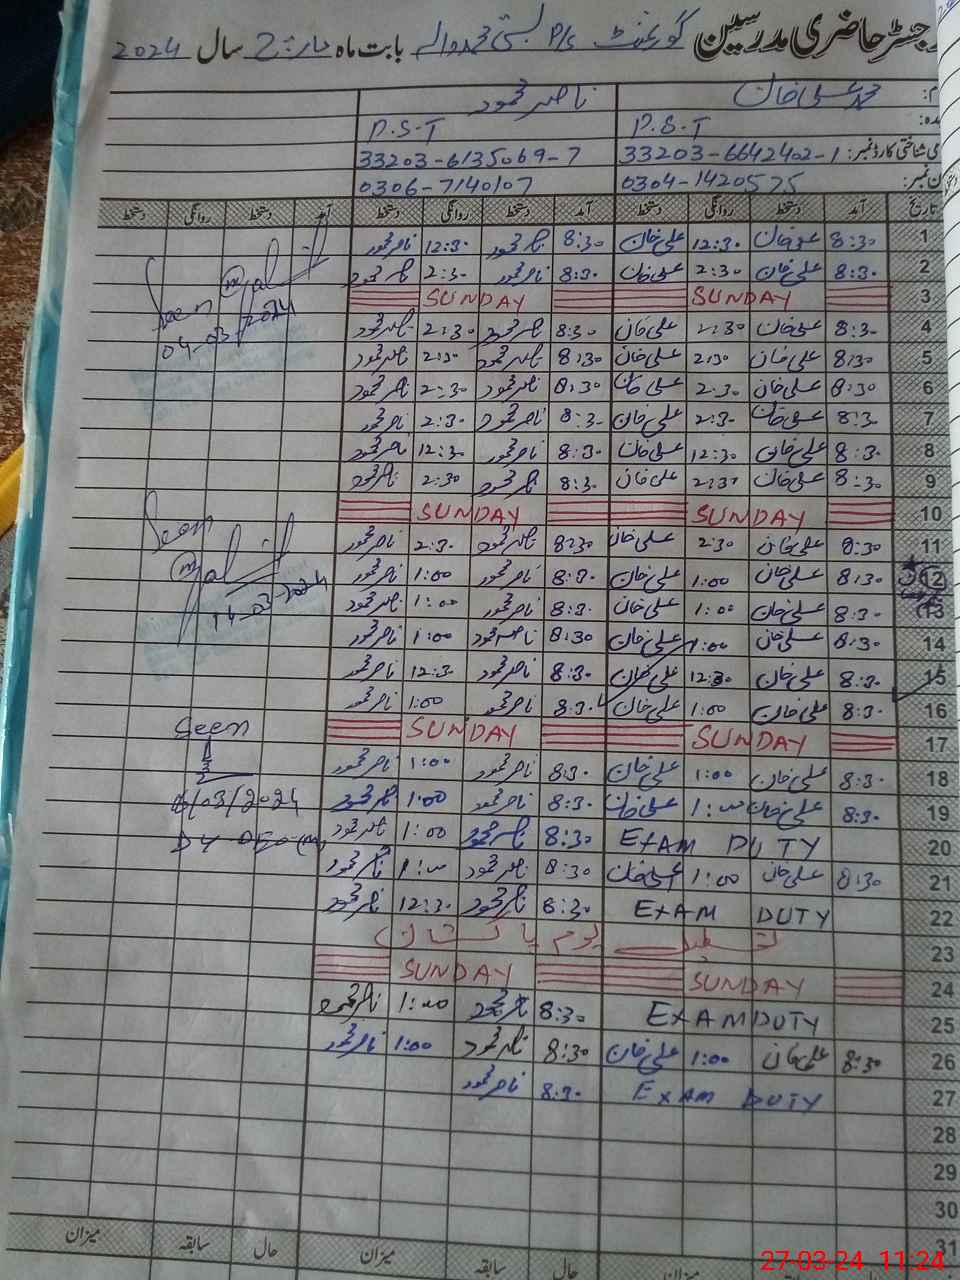 رجسٹر حاضری مدرسین گورنمنٹ P/S بستی محمد والے بابت ماہ مارچ سال 2024
نام: محمد علی خان ناصر محمود
عہدہ: P.S.T P.S.T
قومی شناختی کارڈ نمبر: 33203-6642402-1 33203-6135069-7
فون نمبر: 0304-1420575 0306-7140107
تاریخ آمد دستخط روانگی دستخط آمد دستخط روانگی دستخط آمد دستخط روانگی دستخط
1 8:30 علی خان 12:30 علی خان 8:30 ناصر محمود 12:30 ناصر محمود
2 8:30 علی خان 2:30 علی خان 8:30 ناصر محمود 2:30 ناصر محمود
3 SUNDAY SUNDAY
4 8:30 علی خان 2:30 علی خان 8:30 ناصر محمود 2:30 ناصر محمود
5 8:30 علی خان 2:30 علی خان 8:30 ناصر محمود 2:30 ناصر محمود
6 8:30 علی خان 2:30 علی خان 8:30 ناصر محمود 2:30 ناصر محمود
7 8:30 علی خان 2:30 علی خان 8:30 ناصر محمود 2:30 ناصر محمود
8 8:30 علی خان 12:30 علی خان 8:30 ناصر محمود 12:30 ناصر محمود
9 8:30 علی خان 2:30 علی خان 8:30 ناصر محمود 2:30 ناصر محمود
10 SUNDAY SUNDAY
11 8:30 علی خان 2:30 علی خان 8:30 ناصر محمود 2:30 ناصر محمود
12 8:30 علی خان 1:00 علی خان 8:30 ناصر محمود 1:00 ناصر محمود
13 8:30 علی خان 1:00 علی خان 8:30 ناصر محمود 1:00 ناصر محمود
14 8:30 علی خان 1:00 علی خان 8:30 ناصر محمود 1:00 ناصر محمود
15 8:30 علی خان 12:30 علی خان 8:30 ناصر محمود 12:30 ناصر محمود
16 8:30 علی خان 1:00 علی خان 8:30 ناصر محمود 1:00 ناصر محمود
17 SUNDAY SUNDAY
18 8:30 علی خان 1:00 علی خان 8:30 ناصر محمود 1:00 ناصر محمود
19 8:30 علی خان 1:00 علی خان 8:30 ناصر محمود 1:00 ناصر محمود
20 EXAM DUTY 8:30 ناصر محمود 1:00 ناصر محمود
21 8:30 علی خان 1:00 علی خان 8:30 ناصر محمود 1:00 ناصر محمود
22 EXAM DUTY 8:30 ناصر محمود 12:30 ناصر محمود
23 تعطیل یوم پاکستان
24 SUNDAY SUNDAY
25 EXAM DUTY 8:30 ناصر محمود 1:00 ناصر محمود
26 8:30 علی خان 1:00 علی خان 8:30 ناصر محمود 1:00 ناصر محمود
27 EXAM DUTY 8:30 ناصر محمود
28
29
30
31
حال سابقہ میزان حال سابقہ میزان
Seen
04-03-2024
Seen
14-03-2024
Seen
/03/2024
27-03-24 11:24